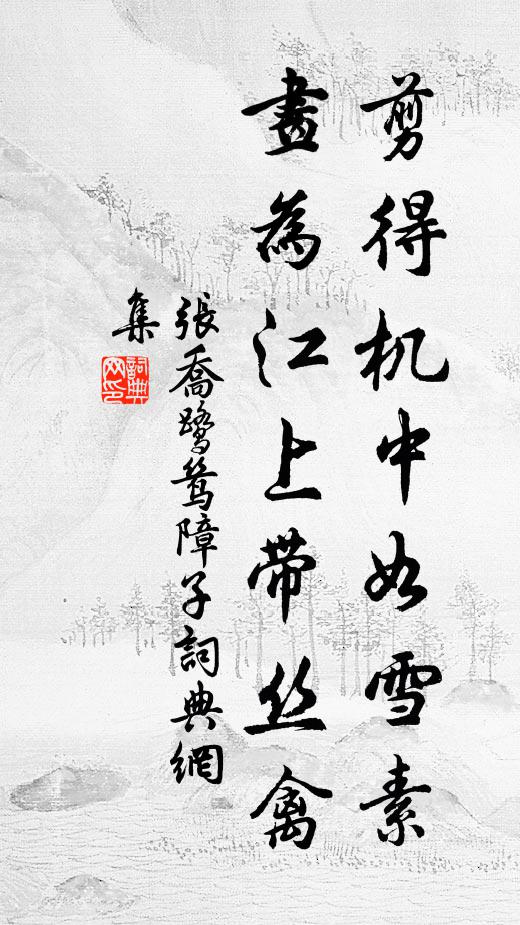 剪得机中如雪素
畫為江上带丝禽
張喬鷺鸶障子詞典網
集
詞典
网印